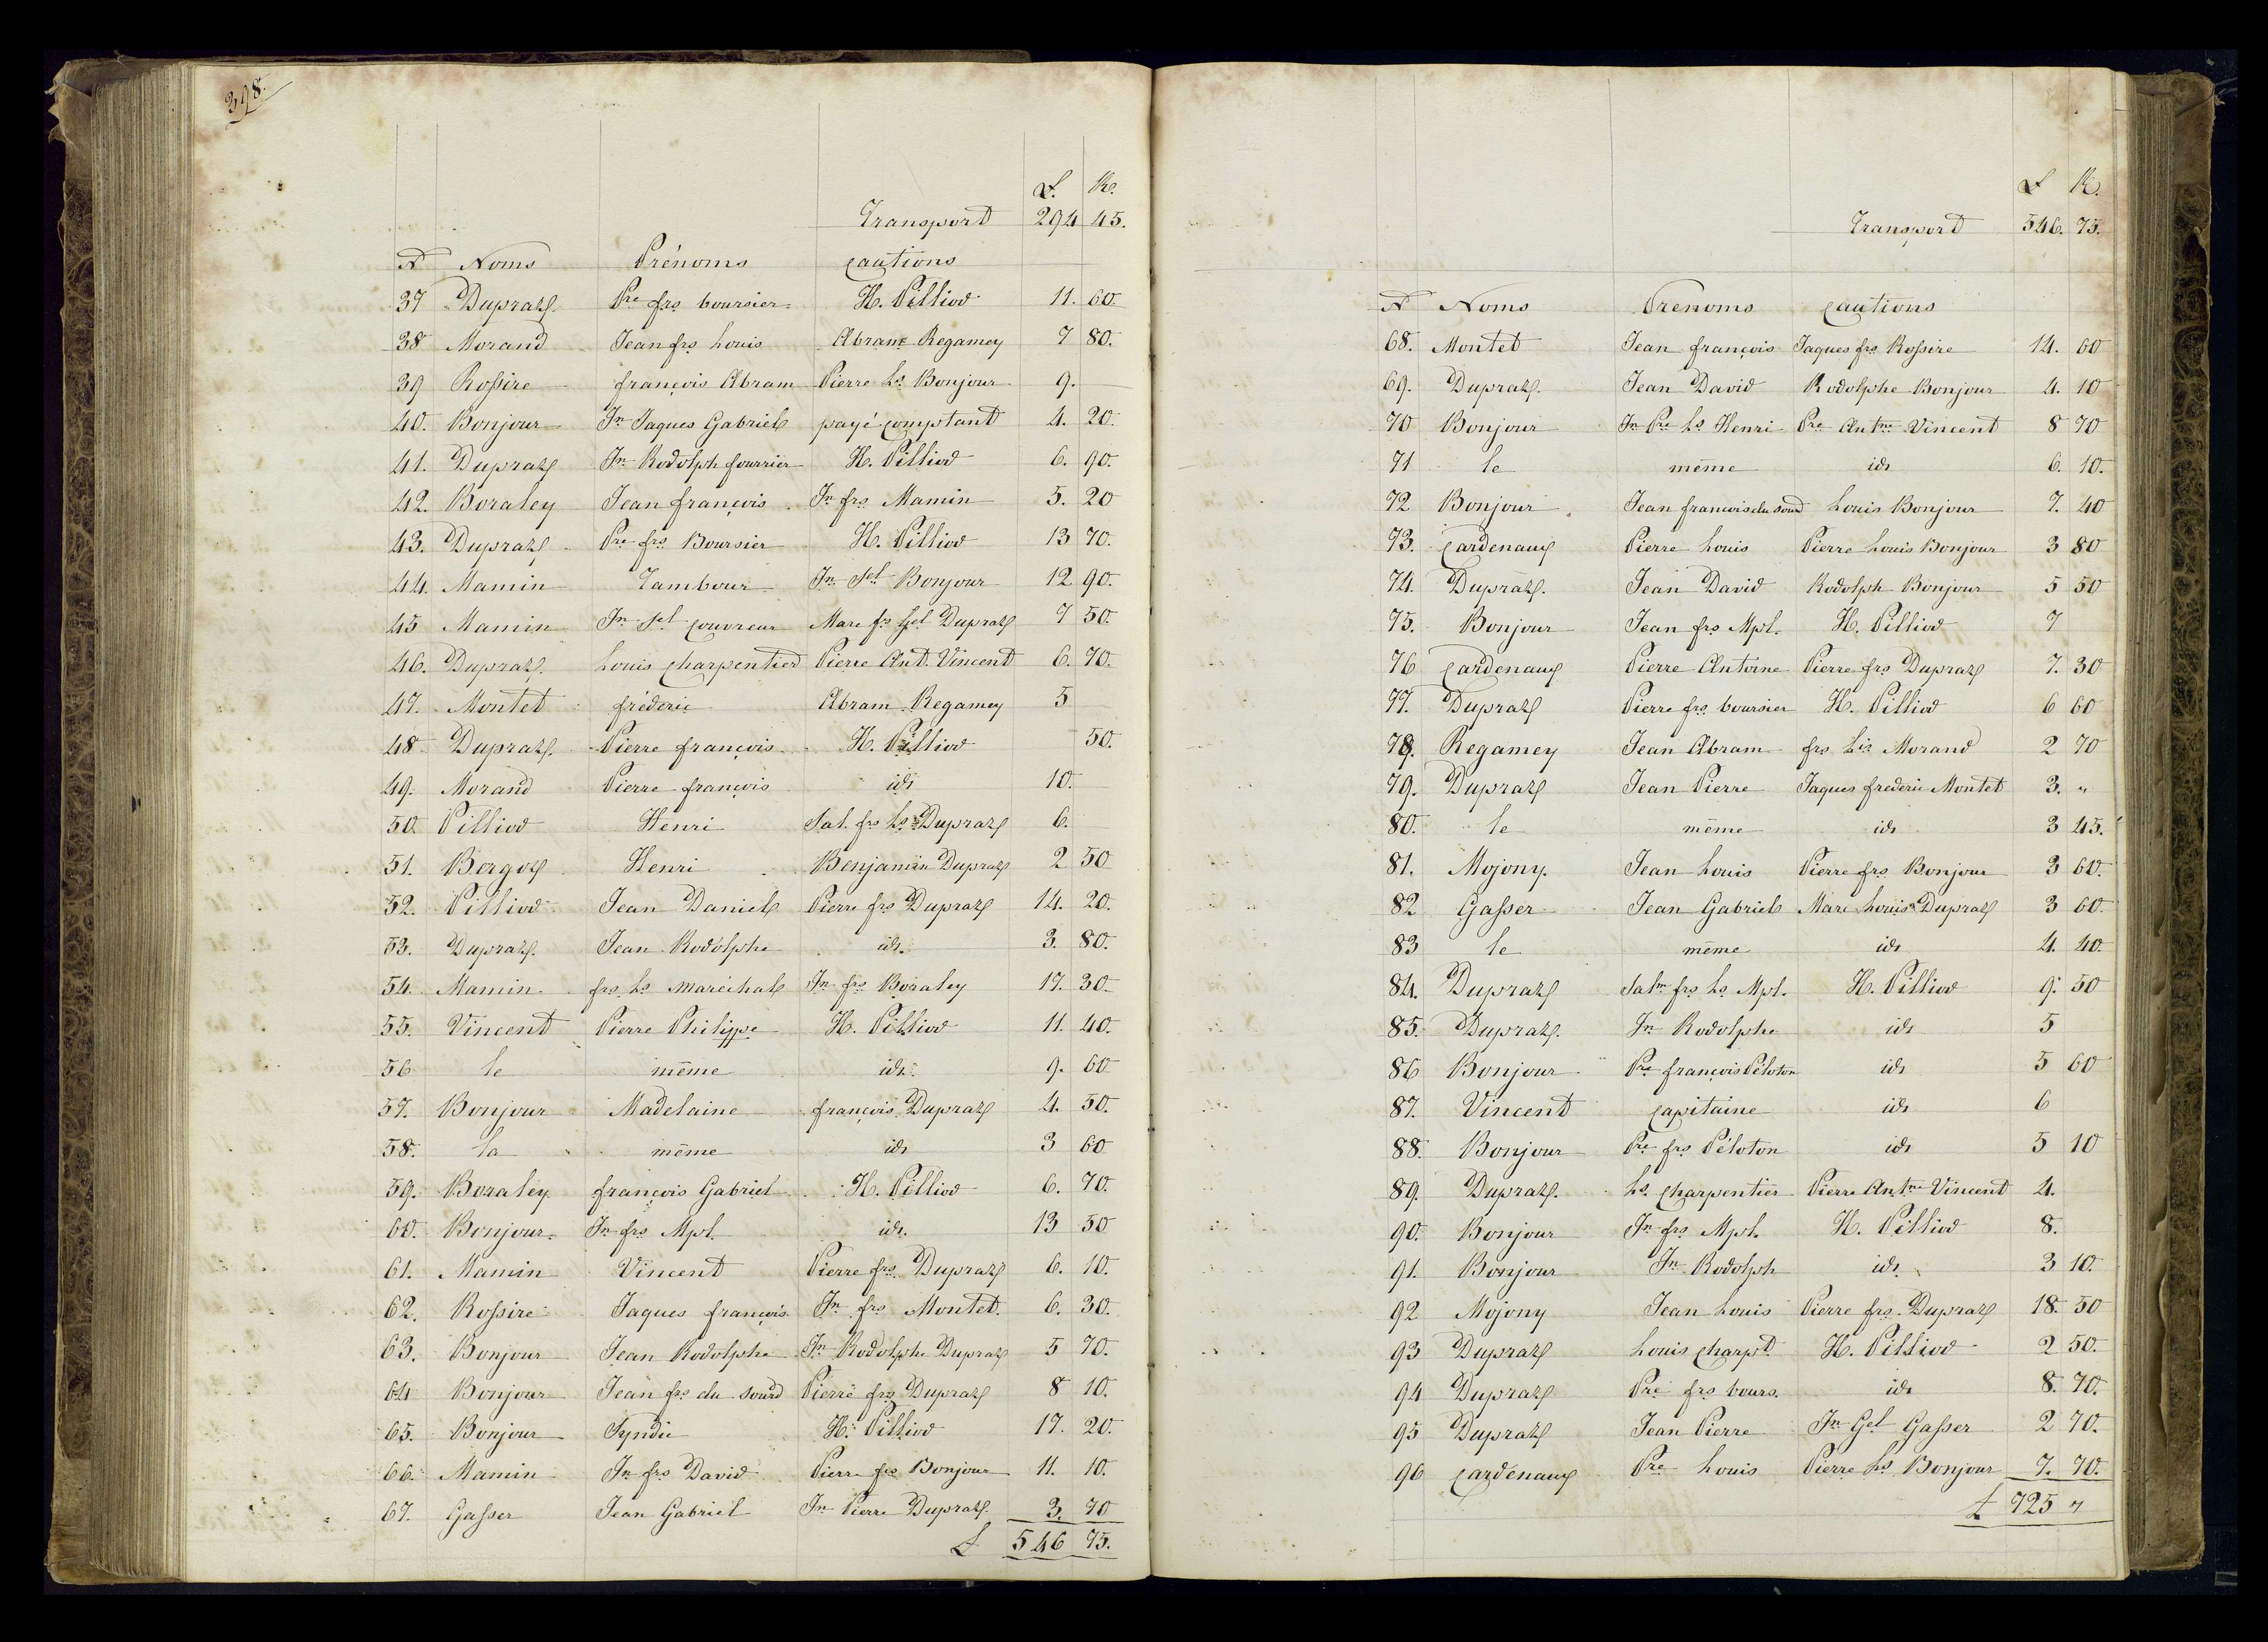 398.
£. Rs.
Transport 294 45.
N° Noms Prénoms Cautions
37 Dupraz Pre frs boursier H. Pilliod 11. 60.
38 Morand Jean frs Louis Abram Regamey 7 80.
39 Rossire françois Abram Pierre Ls Bonjour 9.
40. Bonjour Jn Jaques Gabriel payé comptant 4. 20.
41. Dupraz Jn Rodolph fourrier H. Pilliod 6. 90.
42. Boraley Jean françois Jn frs Mamin 5. 20
43. Dupraz Pre frs Boursier H. Pilliod 13 70.
44. Mamin Tambour Jn Sel Bonjour 12 90.
45 Mamin Jn Sel couvreur Marc frs Gel Dupraz 7 50.
46. Dupraz Louis charpentier Pierre Ant. Vincent 6. 70.
47. Montet fréderic Abram Regamey 5
48 Dupraz Pierre françois H. Pilliod 50.
49. Morand Pierre françois ids 10.
50 Pilliod Henri Sal. frs Ls Dupraz 6.
51. Bergoz Henri Benjamin Dupraz 2 50
52. Pilliod Jean Daniel Pierre frs Dupraz 14. 20.
53. Dupraz Jean Rodolphe ids 3. 80.
54. Mamin frs Ls maréchal Jn frs Boraley 17. 30.
55. Vincent Pierre Philippe H. Pilliod 11. 40.
56 le même ids 9. 60
57. Bonjour Madelaine françois Dupraz 4. 50.
58. la même ids 3 60
59. Boraley françois Gabriel H. Pilliod 6. 70.
60. Bonjour Jn frs Mpl. ids 13 50
61. Mamin Vincent Pierre frs Dupraz 6. 10.
62. Rossire Jaques françois Jn frs Montet 6. 30.
63. Bonjour Jean Rodolphe Jn Rodolphe Dupraz 5 70.
64 Bonjour Jean frs du sourd Pierre frs Dupraz 8 10.
65. Bonjour Syndic H. Pilliod 17. 20.
66. Mamin Jn frs David Pierre frs Bonjour 11. 10.
67. Gasser Jean Gabriel Jn Pierre Dupraz 3. 70
£ 546 75.
£ Rs.
Transport 546. 75.
N° Noms Prenoms Cautions
68. Montet Jean françois Jaques frs Rossire 14. 60
69. Dupraz Jean David Rodolphe Bonjour 4. 10
70 Bonjour Jn Pre Ls Henri Pre Antne Vincent 8 70
71 le même ids 6. 10.
72 Bonjour Jean francois du sourd Louis Bonjour 7. 40
73. Cardenaux Pierre Louis Pierre Louis Bonjour 3 80
74. Dupraz Jean David Rodolph Bonjour 5 50
75. Bonjour Jean frs Mpl. H. Pilliod 7
76 Cardenaux Pierre Antoine Pierre frs Dupraz 7. 30
77. Dupraz Pierre frs boursier H. Pilliod 6 60
78. Regamey Jean Abram frs Lis Morand 2 70
79. Dupraz Jean Pierre Jaques frederic Montet 3. "
80. le même ids 3 45.
81. Mojony Jean Louis Pierre frs Bonjour 3 60.
82 Gasser Jean Gabriel Marc Louis Dupraz 3 60.
83 le même ids 4. 40.
84. Dupraz Salm frs Ls Mpl. H. Pilliod 9. 50
85. Dupraz Jn Rodolphe ids 5
86 Bonjour Pre françois Péloton ids 5 60
87. Vincent Capitaine ids 6
88. Bonjour Pre frs Péloton ids 5 10
89. Dupraz Ls Charpentier Pierre Antne Vincent 4.
90. Bonjour Jn frs Mpl. H. Pilliod 8.
91. Bonjour Jn Rodolph ids 3 10.
92 Mojony Jean Louis Pierre frs Dupraz 18. 50
93 Dupraz Louis Charpt. H. Pilliod 2 50.
94 Dupraz Pre frs bours. ids 8. 70.
95 Dupraz Jean Pierre Jn Gel Gasser 2 70.
96 Cardenaux Pre Louis Pierre Ls Bonjour 7. 70.
£ 725 "